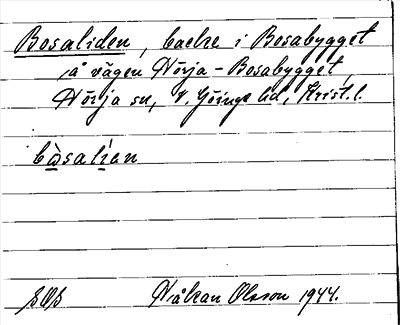 Bosaliden, backe i Bosabygget
å vägen Nörja - Bosabygget,
Nörja sn, V. Göinge hd, Krist. l.
bòsalían
Håkan Olsson 1944.